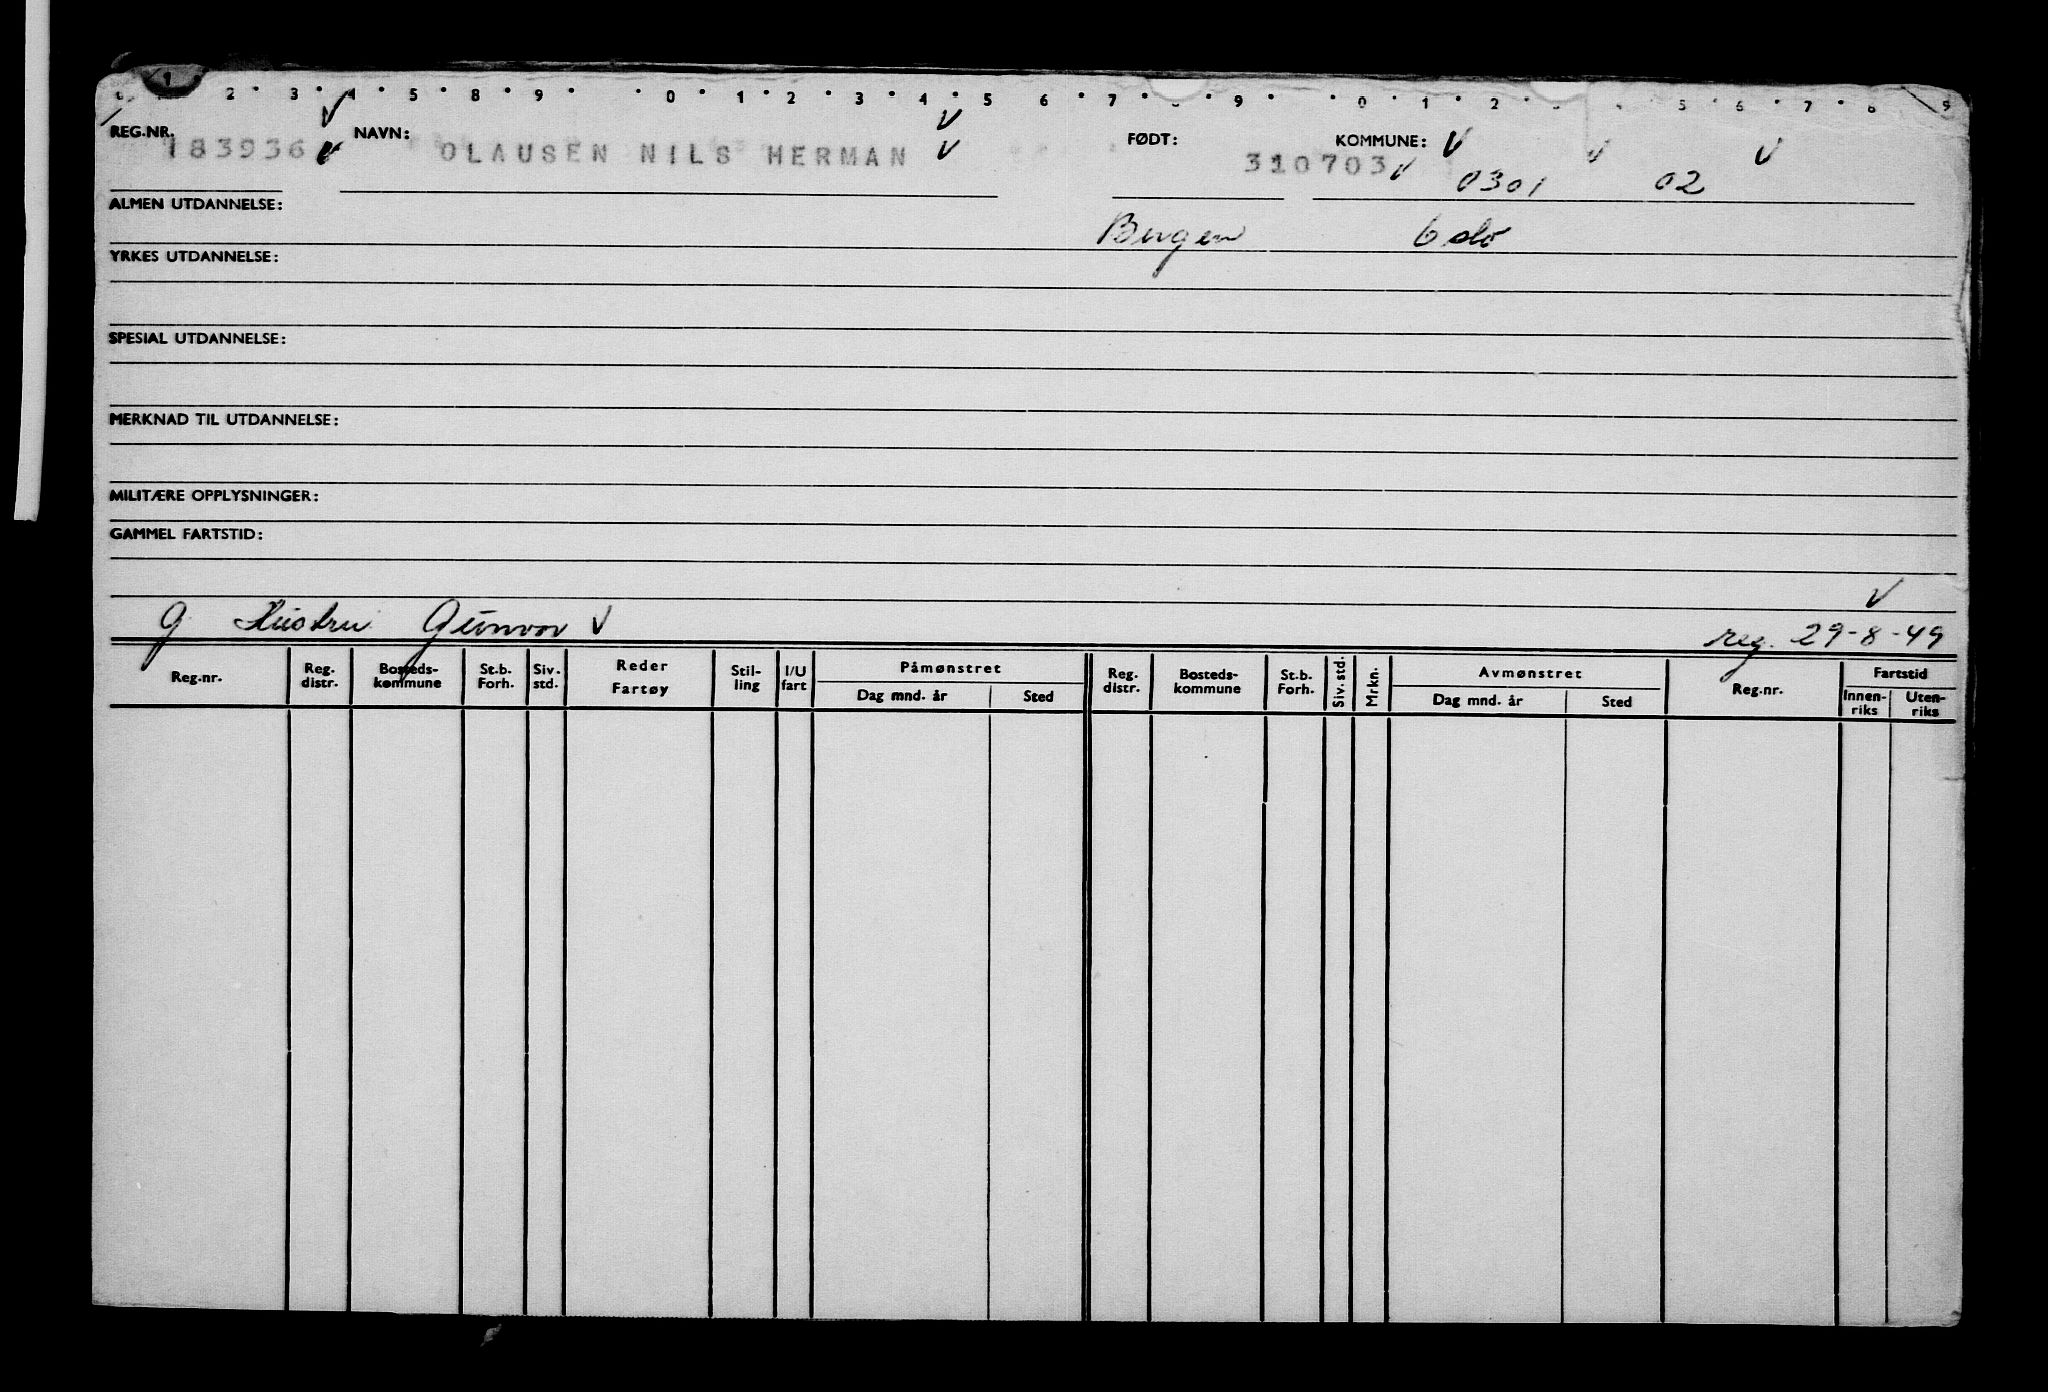 1 2 3 4 5 8 9 0 1 2 3 4 5 6 7 9 0 1 2 5 6 7 8 9
REG.NR. NAVN: FØDT: KOMMUNE:
183936 OLAUSEN NILS HERMAN 310703 0301 02
ALMEN UTDANNELSE: Bergen Oslo
YRKES UTDANNELSE:
SPESIAL UTDANNELSE:
MERKNAD TIL UTDANNELSE:
MILITÆRE OPPLYSNINGER:
GAMMEL FARTSTID:
g Hustru Gunvor reg. 29-8-49
Reg.nr. Reg. distr. Bosteds-kommune St.b. Forh. Siv. std. Reder Fartøy Stil-ling I/U fart Påmønstret Dag mnd. år Sted Reg. distr. Bosteds-kommune St.b. Forh. Siv. std. Mrkn. Avmønstret Dag mnd. år Sted Reg.nr. Fartstid Innen-riks Uten-riks